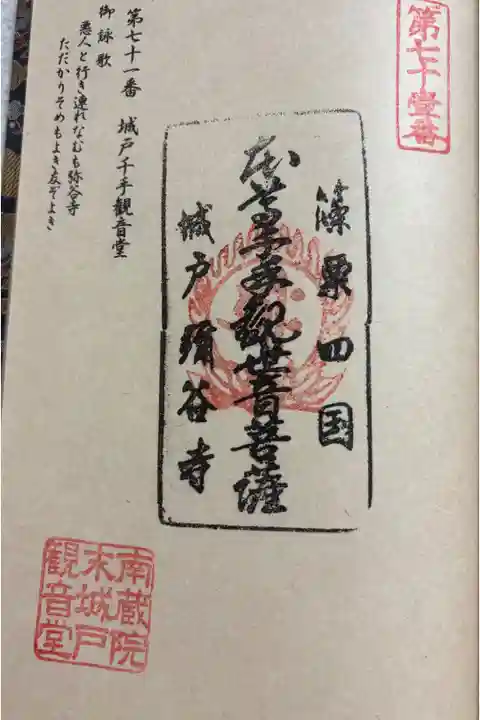 第七十壹番
篠栗四国
本尊千手観世音菩薩
城戸弥谷寺
第七十一番 城戸千手観音堂
御詠歌
悪人と行き連れなむも弥谷寺
ただかりそめもよき友ぞよき
南蔵院
末城戸
観音堂